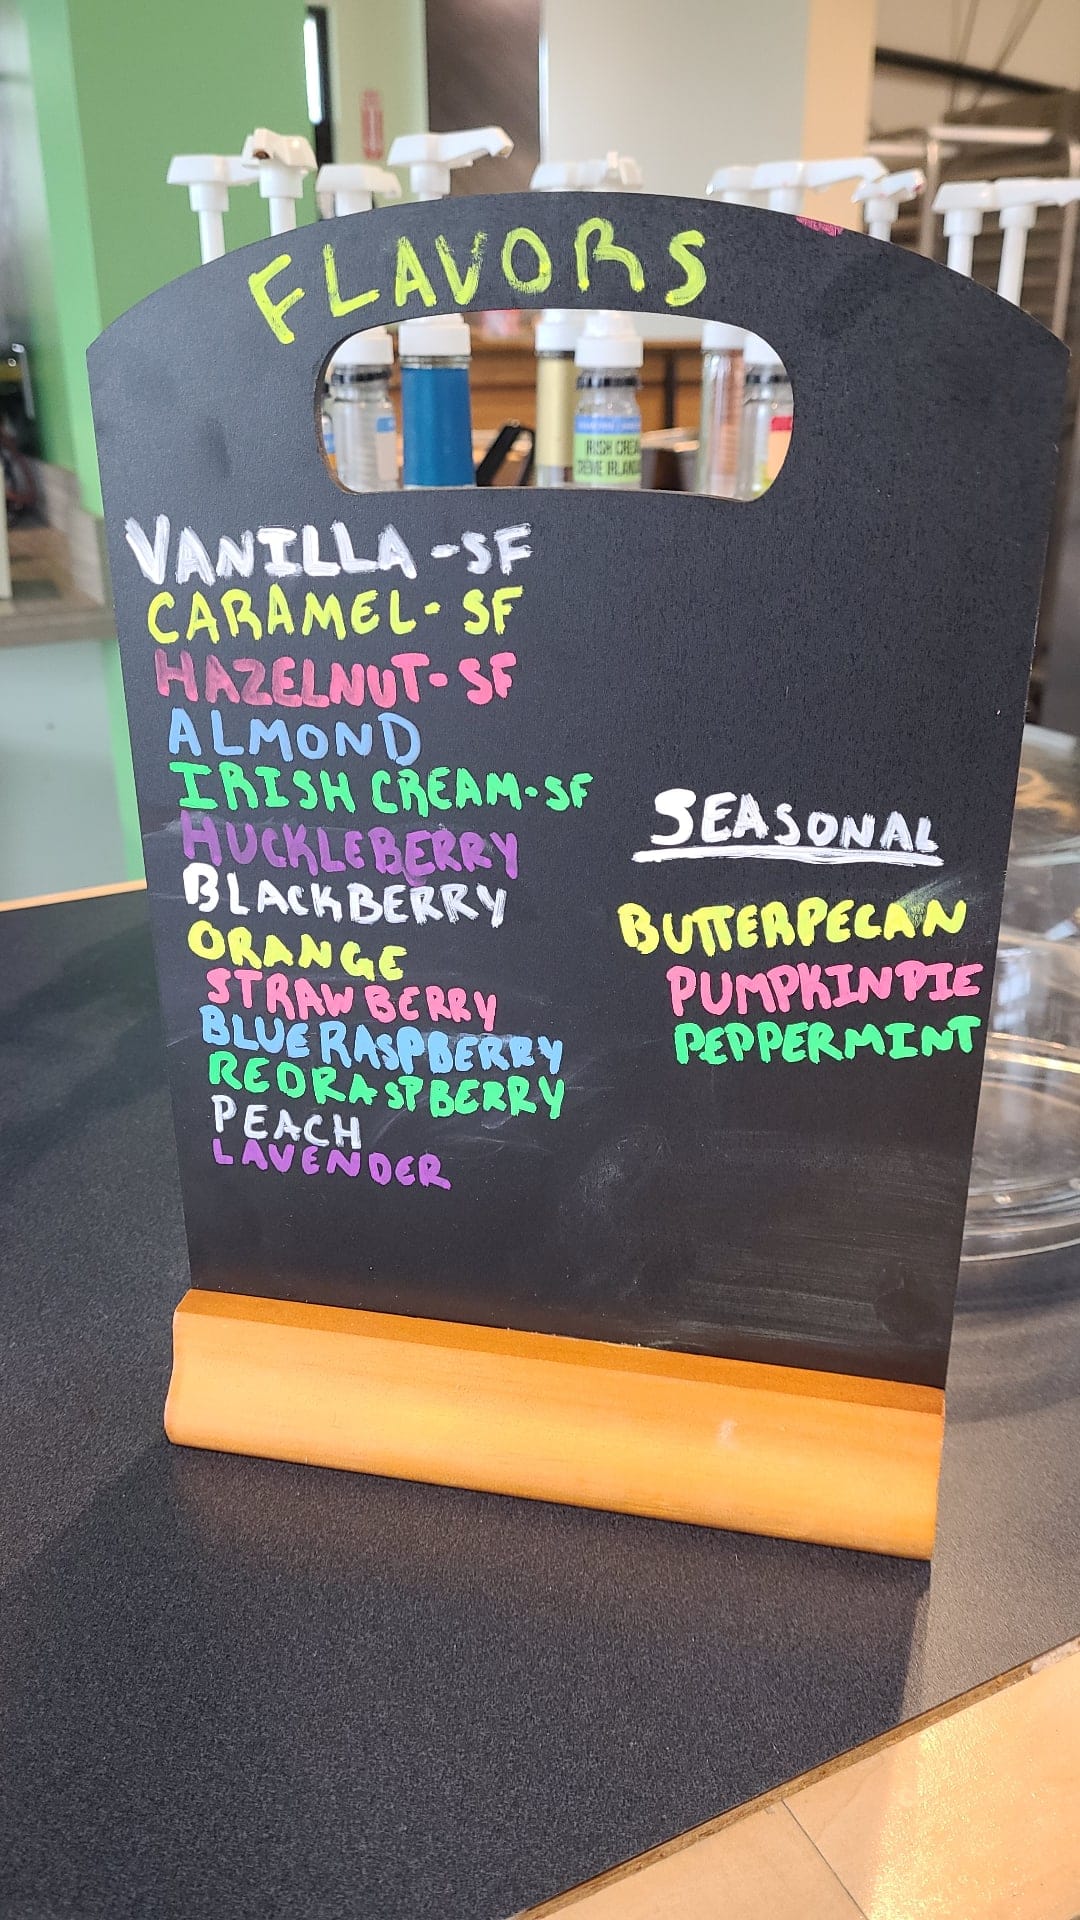 FLAVORS
IRISH CREA
CRÈME IRLAN
VANILLA-SF
CARAMEL-SF
HAZELNUT-SF
ALMOND
IRISH CREAM-SF
HUCKLEBERRY
BLACKBERRY
ORANGE
STRAWBERRY
BLUE RASPBERRY
RED RASPBERRY
PEACH
LAVENDER
SEASONAL
BUTTERPECAN
PUMPKIN PIE
PEPPERMINT